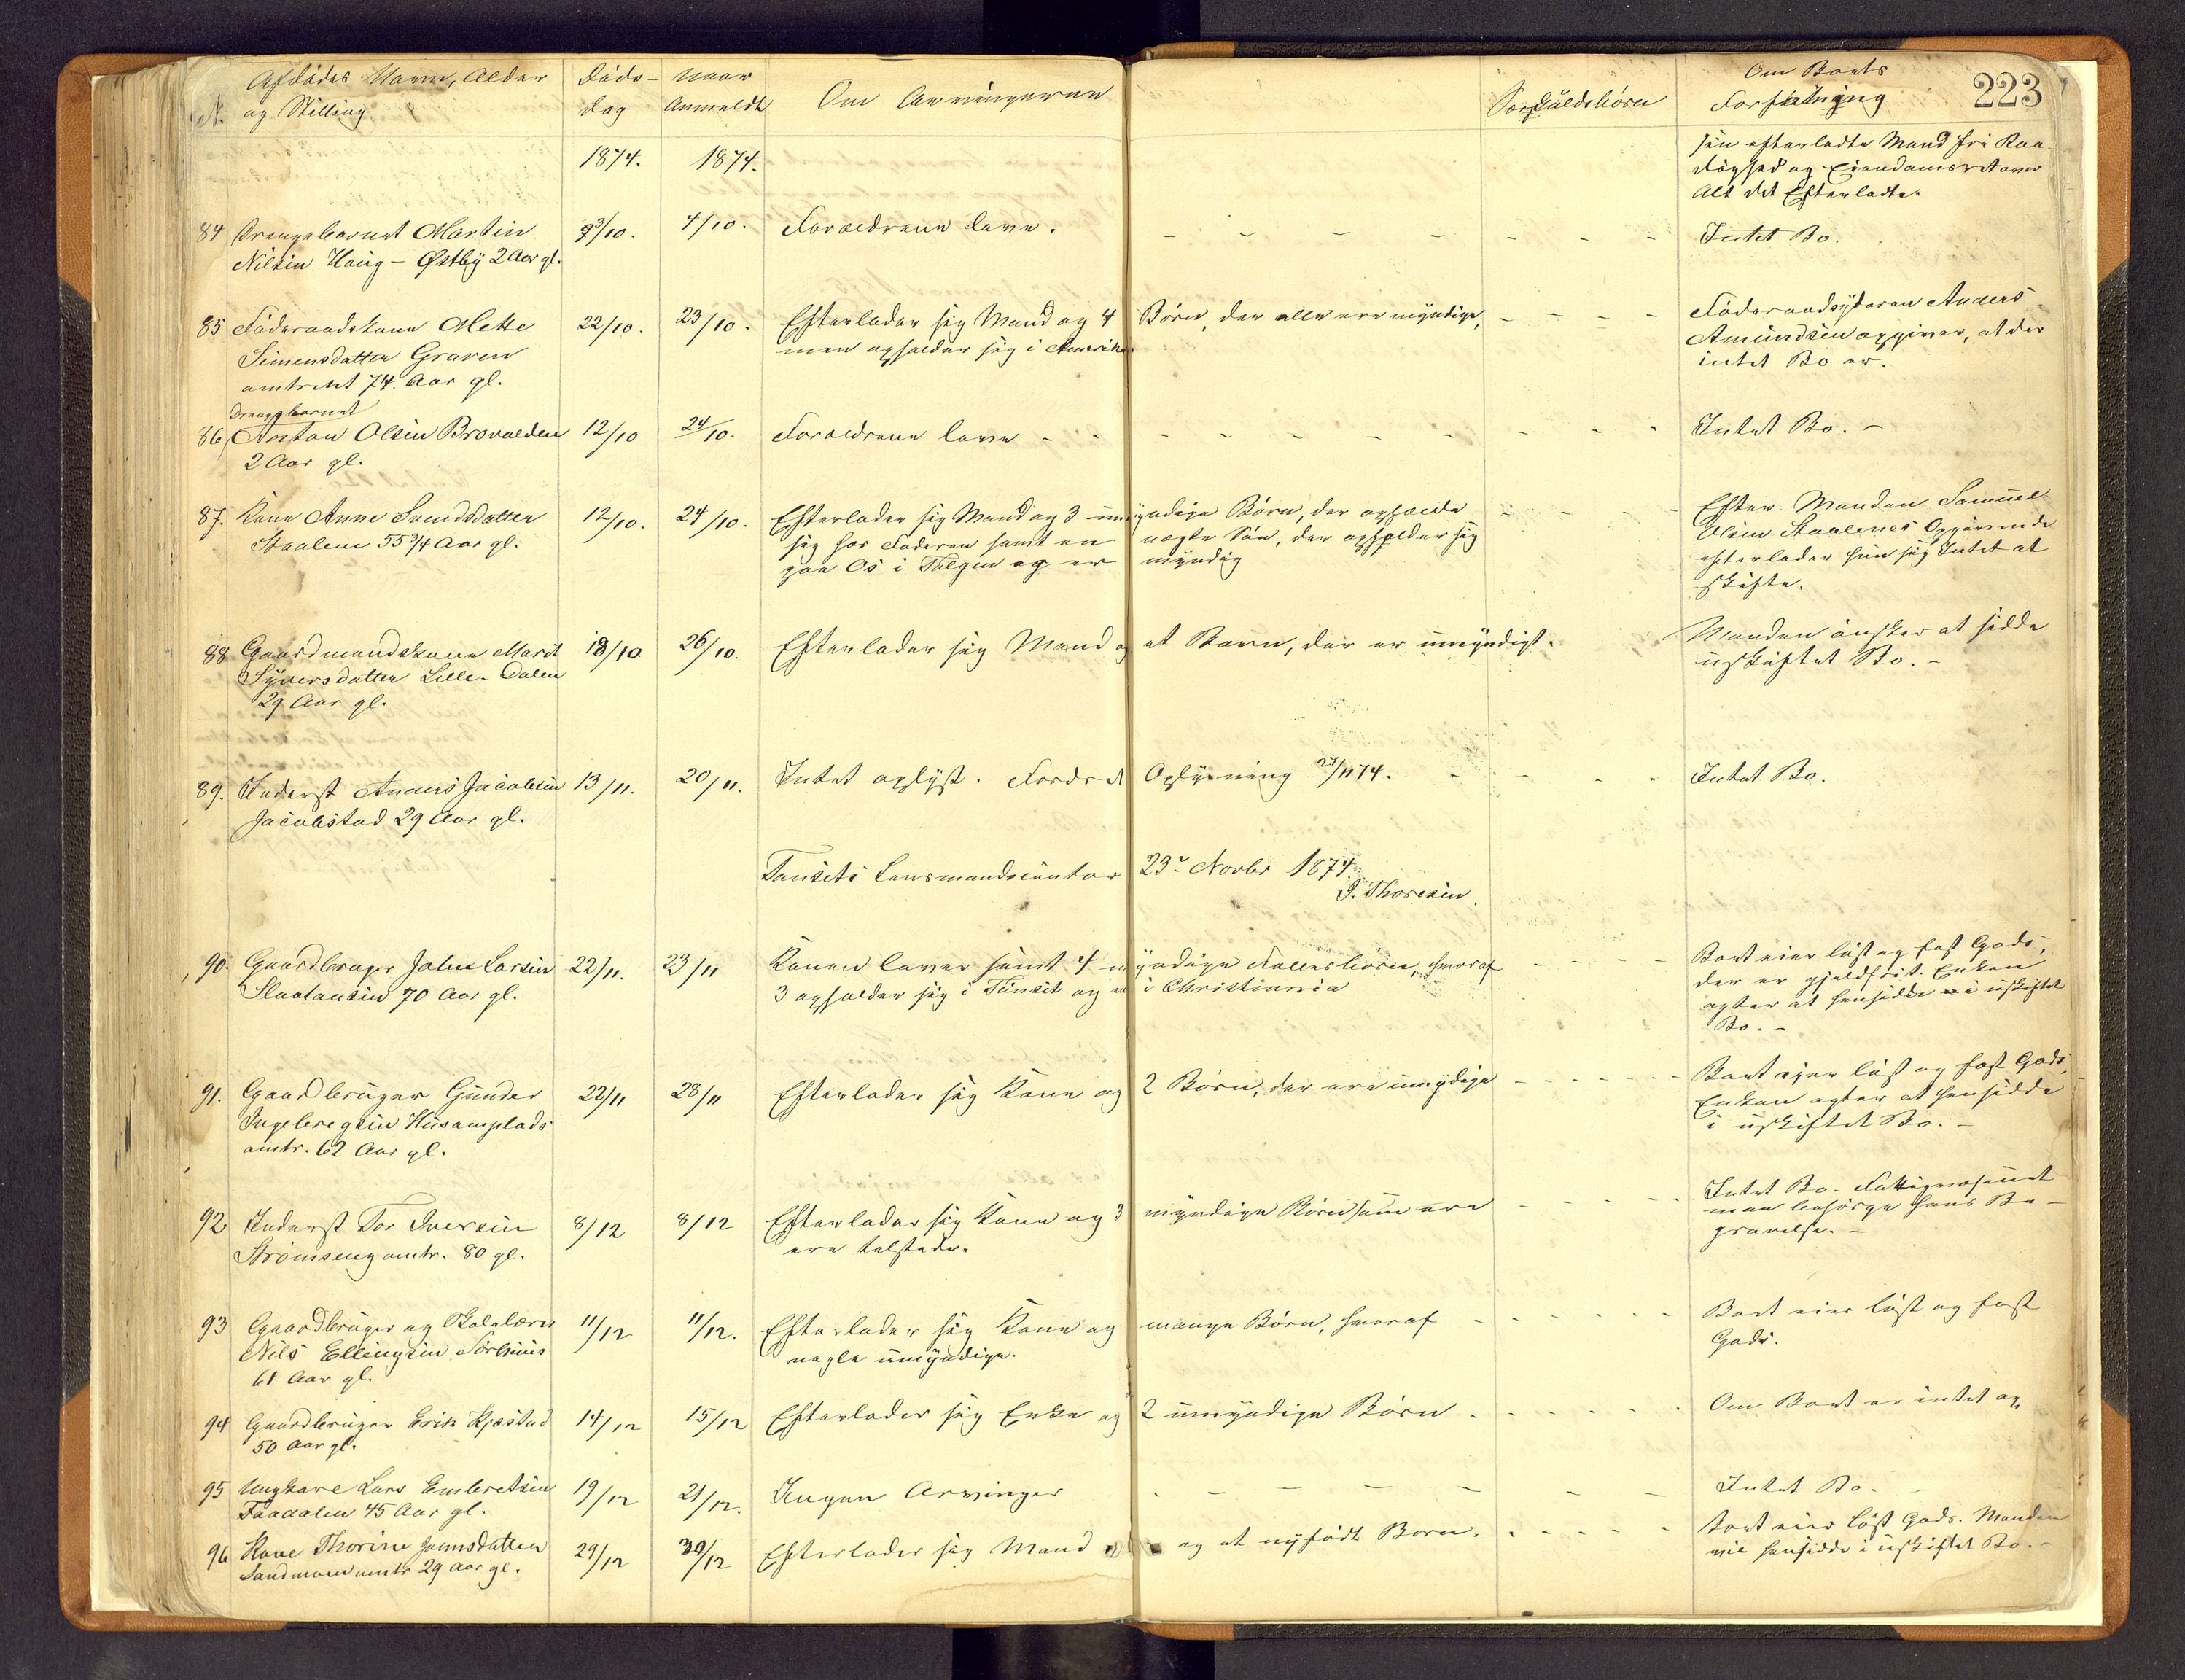 223
N. Afdødes Navn, Alder
og Stilling
Døds-
dag
Naar
Anmeldt
Om Arvingerne
Særkuldsbørn
Om Boets
Forfatning
1874. 1874.
sin efterladte Mand fri Raa
dighed og Eiendomsret over
Alt det Efterladte.
84 Drengebarnet Martin 3/10. 4/10. Forældrene leve. Intet Bo.
Nilsen Haug - Østby 2 Aar gl.
85 Føderaadskone Mette 22/10. 23/10. Efterlader sig Mand og 4 Børn, der alle ere myndige,
men opholder sig i Amerika
Simensdatter Graven
omtrent 74. Aar gl.
Føderaadsyderen Anders
Amundsen opgiver, at der
intet Bo er.
Drengebarnet
86, Anton Olsen Brovolden 12/10 24/10. Forældrene leve Intet Bo. -
2 Aar gl.
87. Kone Anne Svendsdatter 12/10. 24/10. Efterlader sig Mand og 3 umyndige Børn, der opholde
Staalene 55 3/4 Aar gl. sig hos Faderen samt en uægte Søn, der opholder sig
paa Os i Tolgen og er myndig
Efter Manden Samuel
Olsen Staalenes Opgivende
efterlader hun sig Intet at
skifte.
88 Gaardmandskone Marit 18/10 26/10. Efterlader sig Mand og et Barn, der er umyndigt.
Syversdatter Lille-Dalen
29 Aar gl.
Manden ønsker at sidde
uskiftet Bo. -
89. Inderst Anders Jacobsen 13/11. 20/11. Intet oplyst. Fordret Oplysning 27/11 74. Intet Bo.
Jacobstad 29 Aar gl.
Tønsets Lensmandscontor 23de Novbr 1874.
P. Thoresen.
90. Gaardbruger John Larsen 22/11. 23/11 Konen lever samt 4 myndige Fællesbørn, hvoraf
70 Aar gl. 3 opholder sig i Tønset og en i Christiania
Boet eier løst og fast Gods,
der er gjeldfrit. Enken
agter at hensidde i uskiftet
Bo. -
91. Gaardbruger Gunder 22/11 28/11 Efterlader sig Kone og 2 Børn, der ere umyndige
Ingebregtsen Husamplads
omtr. 62 Aar gl.
Boet eier løst og fast Gods,
Enken agter at hensidde
i uskiftet Bo. -
92 Inderst Tor Iversen 8/12 8/12 Efterlader sig Kone og 3 myndige Børn som ere
Strømseng omtr. 80 gl. ere tilstede.
Intet Bo. Fattigvæsenet
maa besørge hans Be-
gravelse. -
93 Gaardbruger og Skolelærer 11/12 11/12. Efterlader sig Kone og mange Børn, hvoraf
Nils Ellingsen Sørhuus nogle umyndige.
61 Aar gl.
Boet eier løst og fast
Gods.
94 Gaardbruger Erik Kjæstad 14/12 15/12 Efterlader sig Enke og 2 umyndige Børn. Om Boet er intet op
50 Aar gl.
95 Ungkarl Lars Embretsen 19/12 21/12. Ingen Arvinger Intet Bo.
Faadalen 45 Aar gl.
96 Kone Thorine Joensdatter 29/12 30/12 Efterlader sig Mand og et nyfødt Barn. Boet eier løst Gods. Manden
Sandmoen omtr 29 Aar gl. vil hensidde i uskiftet Bo. -